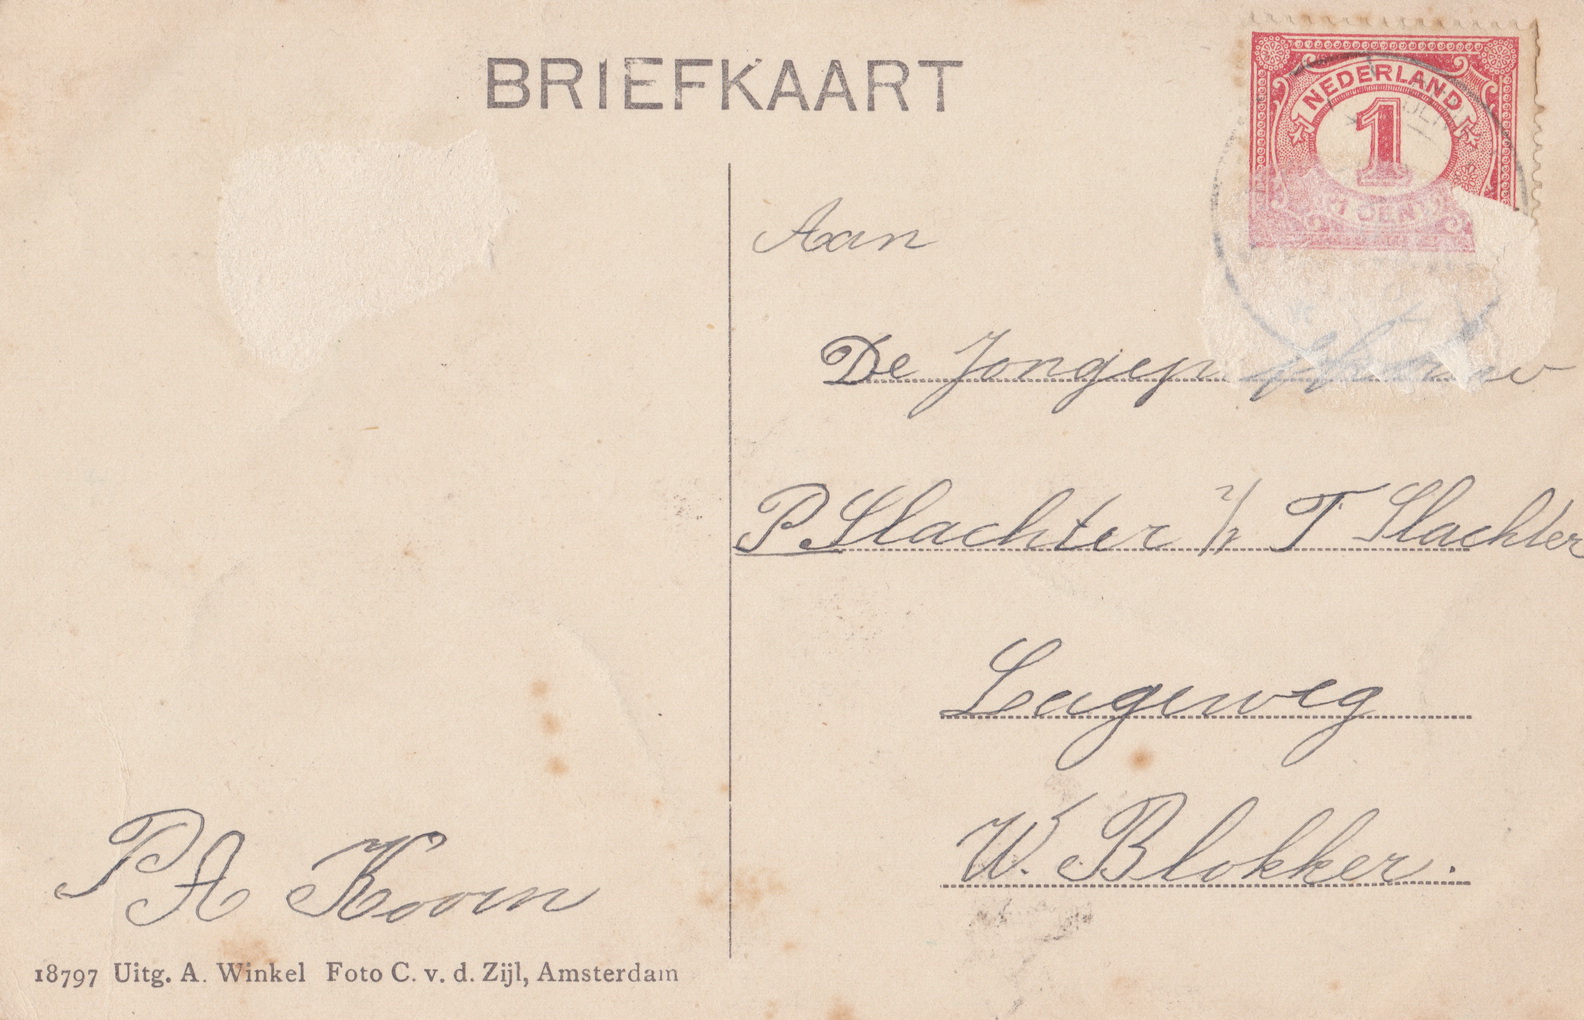 BRIEFKAART
NEDERLAND
1
CENT
Aan
De Jongejuffrouw
P. Slachter p/a T Slachter
Lageweg
W. Blokker.
PA Koom
18797 Uitg. A. Winkel Foto C. v. d. Zijl, Amsterdam